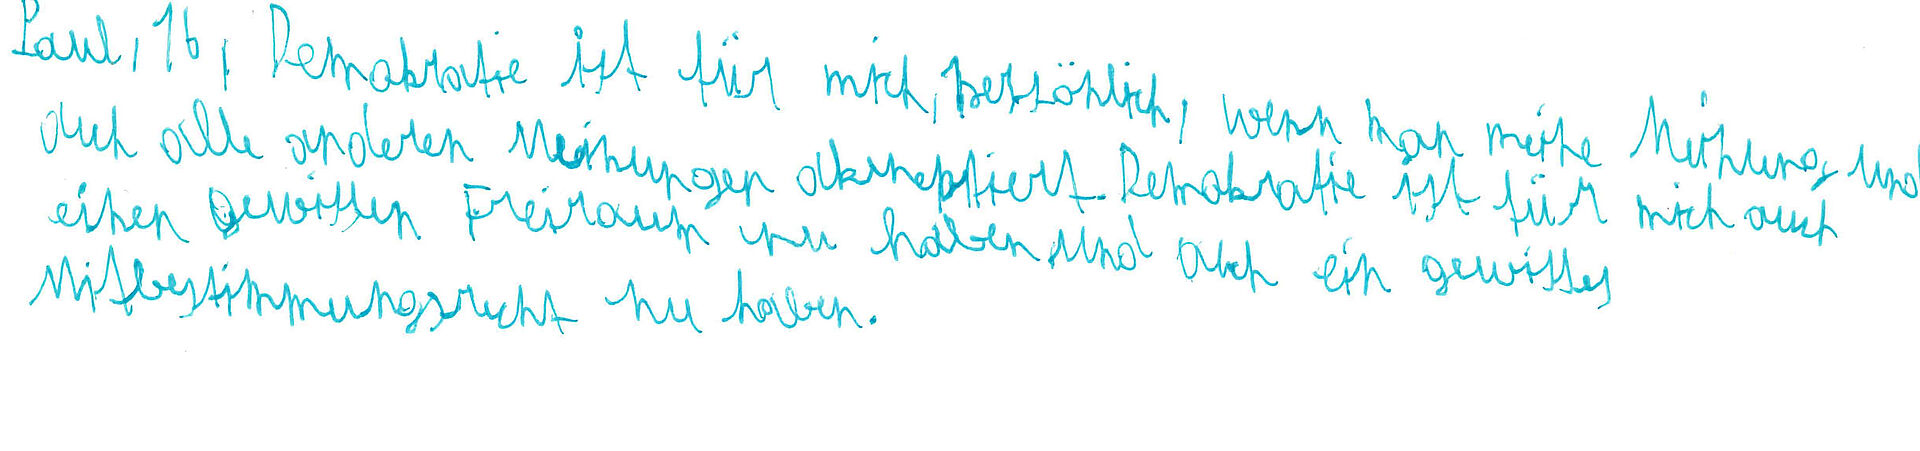 Paul, 16, Demokratie ist für mich, persöhlich, wenn man meine Meinung und
auch alle anderen Meinungen akzheptiert. Demokratie ist für mich auch
einen gewissen Freiraum zu haben und auch ein gewisses
Mitbestimmungsrecht zu haben.